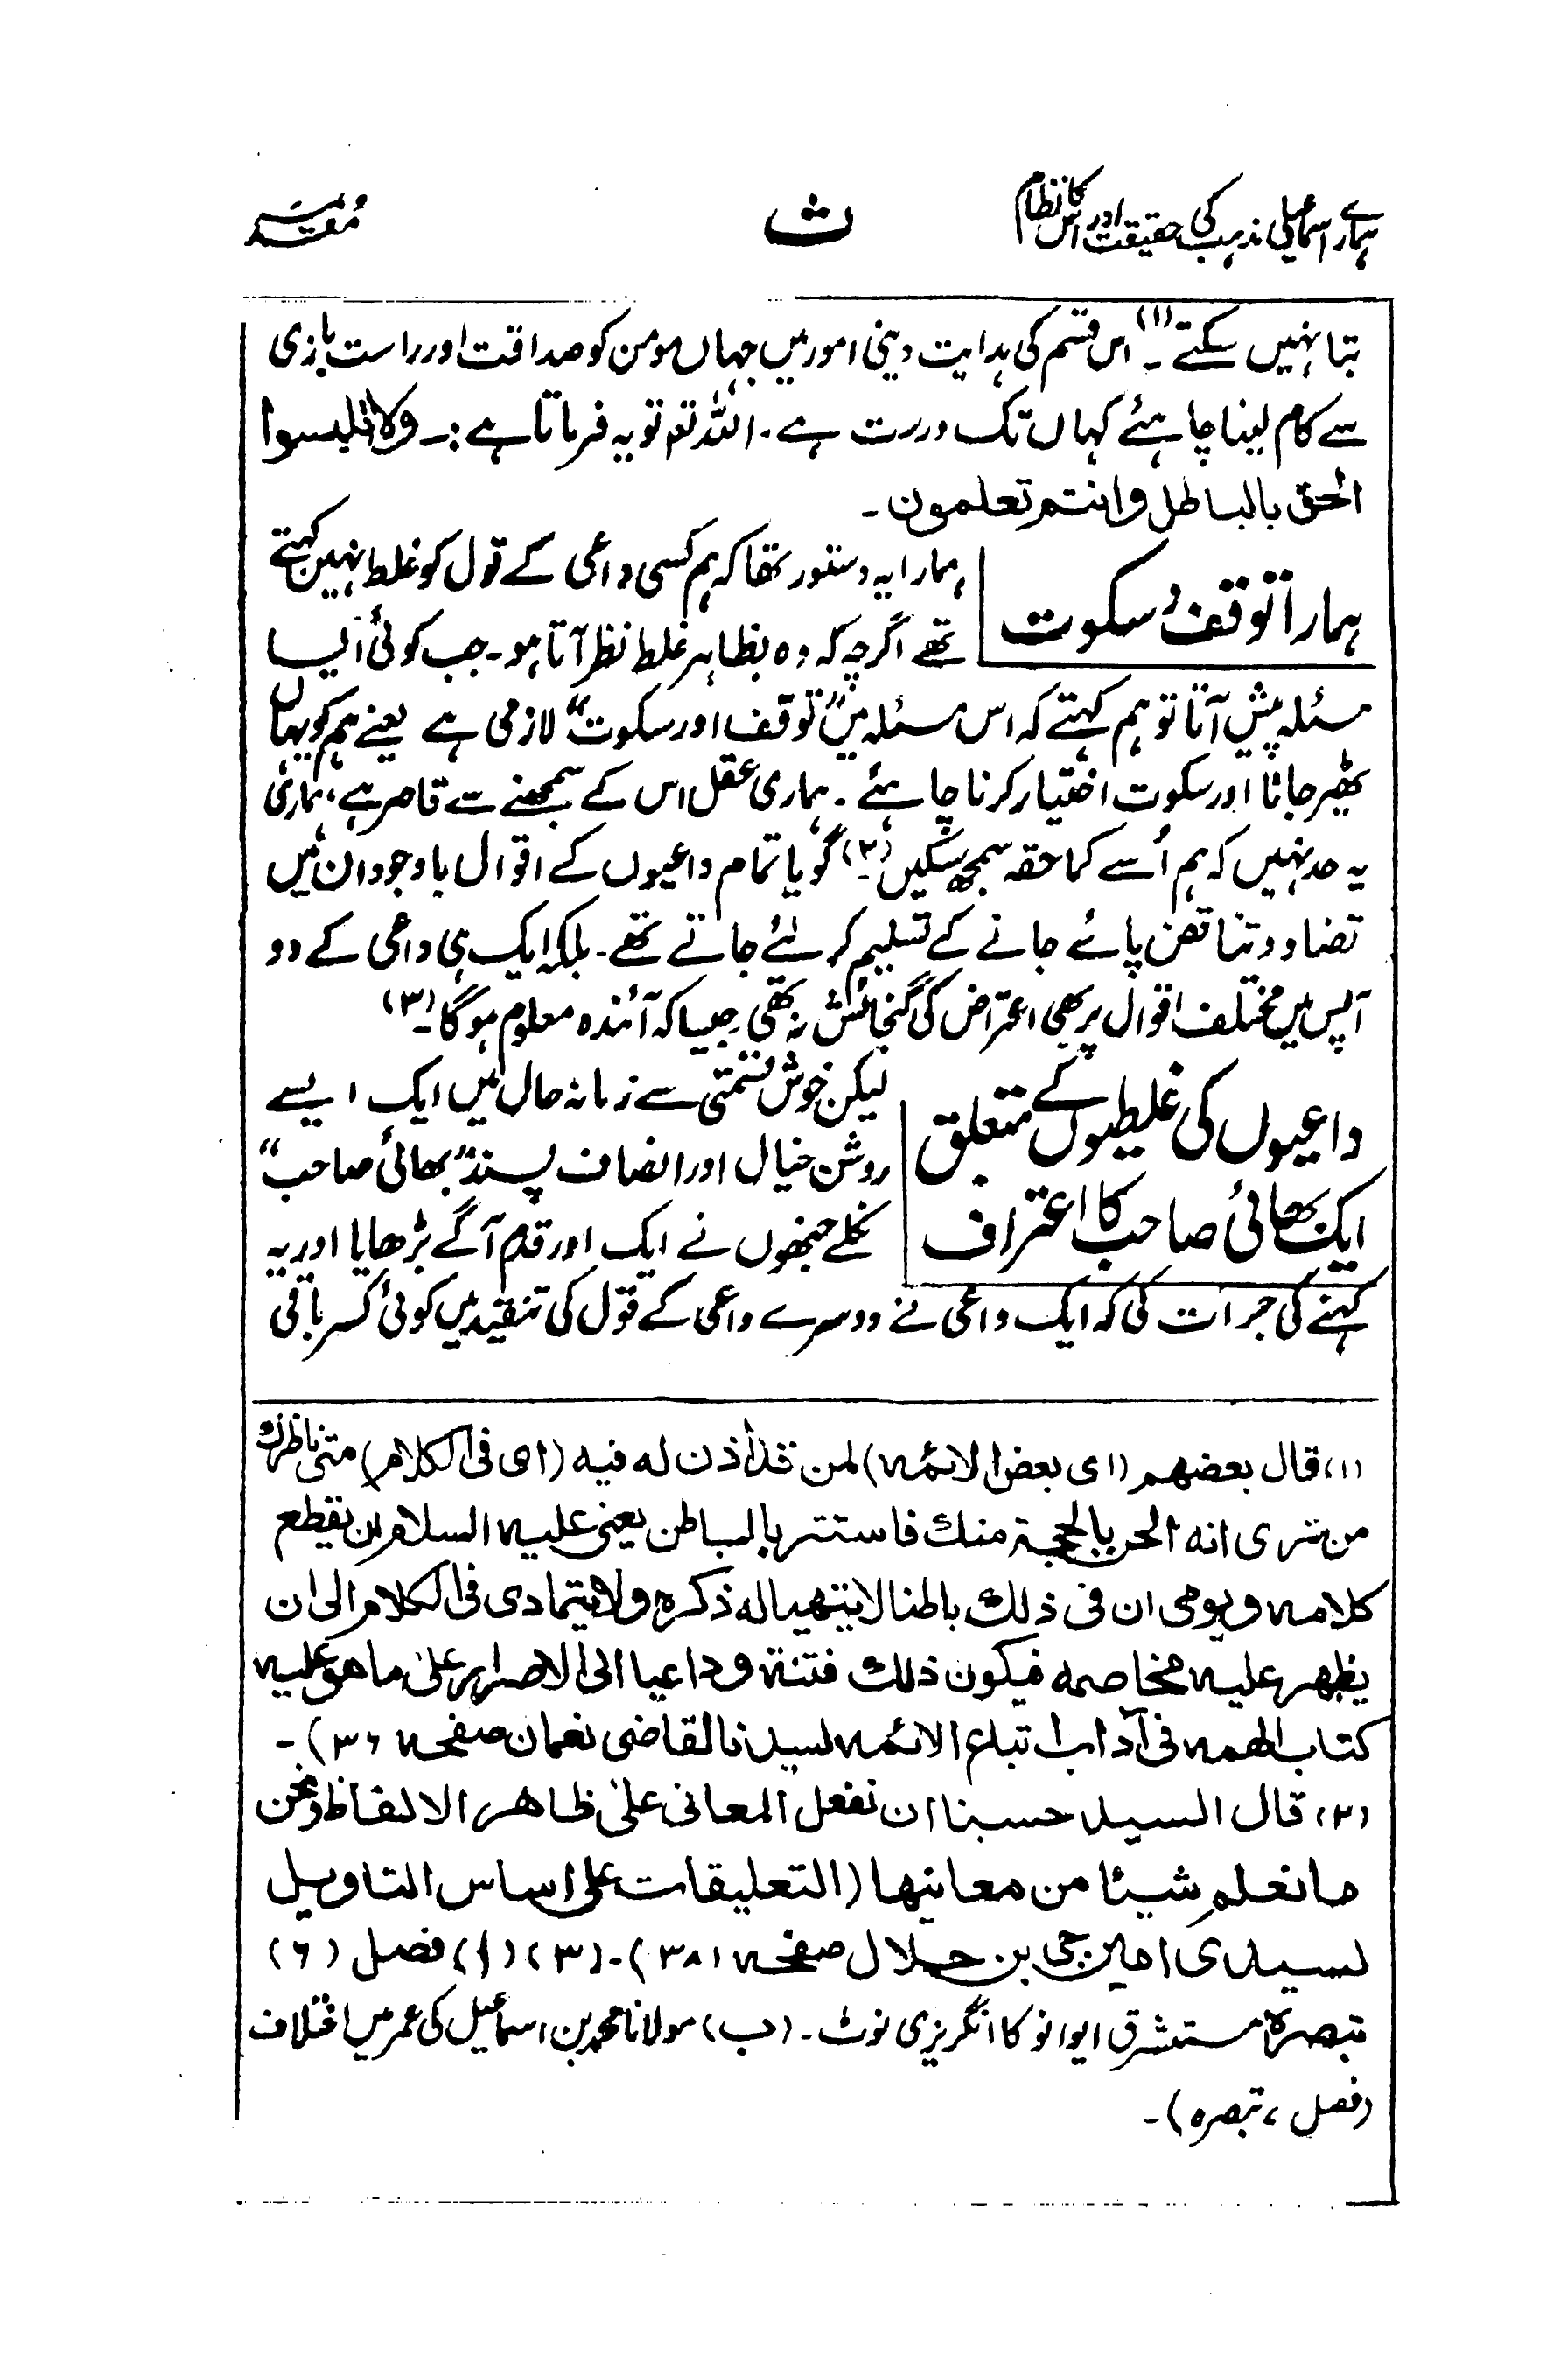 ہمارے اسماعیلی مذہب کی حقیقت اور اس کا نظام
ث
مقدمہ
بتا نہیں سکتے۔(۱) اس قسم کی ہدایت دینی امور میں جہاں مومن کو صداقت اور راست بازی
سے کام لینا چاہئے کہاں تک درست ہے۔ اللہ تع تو یہ فرماتا ہے :۔ ولا تلبسوا
الحق بالباطل وانتم تعلمون۔
ہمارا توقف و سکوت
ہمارا یہ دستور تھا کہ ہم کسی داعی کے قول کو غلط نہیں کہتے
تھے اگرچہ کہ وہ بظاہر غلط نظر آتا ہو۔ جب کوئی ایسا
مسئلہ پیش آتا تو ہم کہتے کہ اس مسئلہ میں ”توقف اور سکوت“ لازمی ہے یعنے ہم کو یہاں
ٹھیر جانا اور سکوت اختیار کرنا چاہئے۔ ہماری عقل اس کے سمجھنے سے قاصر ہے، ہماری
یہ حد نہیں کہ ہم اُسے کما حقہ سمجھ سکیں۔(۲) گویا تمام داعیوں کے اقوال باوجود ان میں
تضاد و تناقض پائے جانے کے تسلیم کر لئے جاتے تھے۔ بلکہ ایک ہی داعی کے دو
آپس میں مختلف اقوال پر بھی اعتراض کی گنجائش نہ تھی جیسا کہ آئندہ معلوم ہوگا۔(۳)
داعیوں کی غلیطیوں کے متعلق
ایک بھائی صاحب کا اعتراف
لیکن خوش قسمتی سے زمانہ حال میں ایک ایسے
روشن خیال اور انصاف پسند ”بھائی صاحب“
نکلے جنھوں نے ایک اور قدم آگے بڑھایا اور یہ
کہنے کی جرات کی کہ ایک داعی نے دوسرے داعی کے قول کی تنقید میں کوئی کسر باقی
(۱) قال بعضهم (ای بعض الائمه) لمن قد أذن له فيه (ای فی الكلام) متی ناظرك
من تری انه الحن بالحجة منك فاستتر بالباطن يعنی عليه السلام بن يقطع
كلامه ويومی ان فی ذلك باطنا لا يتهيا له ذكره ولا يتمادی فی الكلام الی ان
يظهر عليه مخاصمه فيكون ذلك فتنة وداعيا الی الاصرار علی ما هو عليه
كتاب الهمه فی آداب اتباع الائمه لسيدنا القاضی نعمان صفحه ۳۶)۔
(۲) قال السيد حسبنا ان نفعل المعانی علی ظاهر الالفاظ ونحن
ما نعلم شيئا من معانيها (التعليقات علی اساس التاويل
لسيدی امين جی بن جلال صفحه ۳۸۱)۔ (۳) (ا) فصل (۶)
تبصرہ مستشرق ایوانو کا انگریزی نوٹ۔ (ب) مولانا محمد بن اسماعیل کی عمر میں اختلاف
(فصل ، تبصرہ)۔